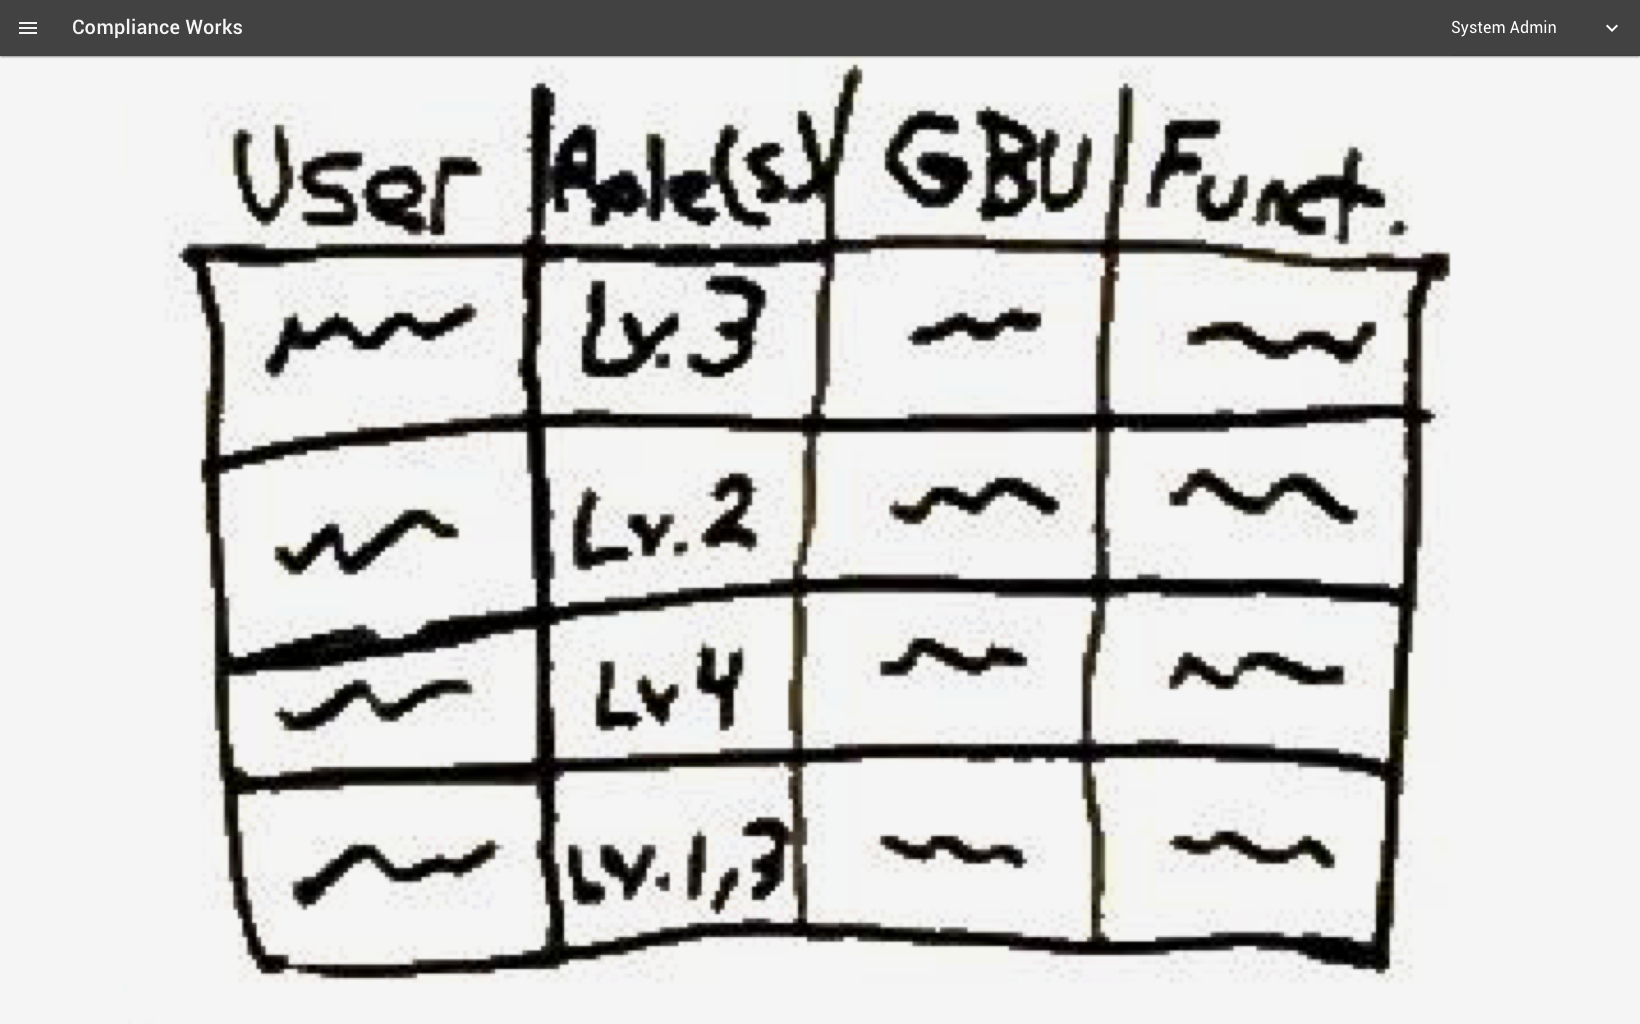 Compliance Works
System Admin
User Role(s) GBU Funct.
Lv.3
Lv.2
Lv 4
Lv.1,3